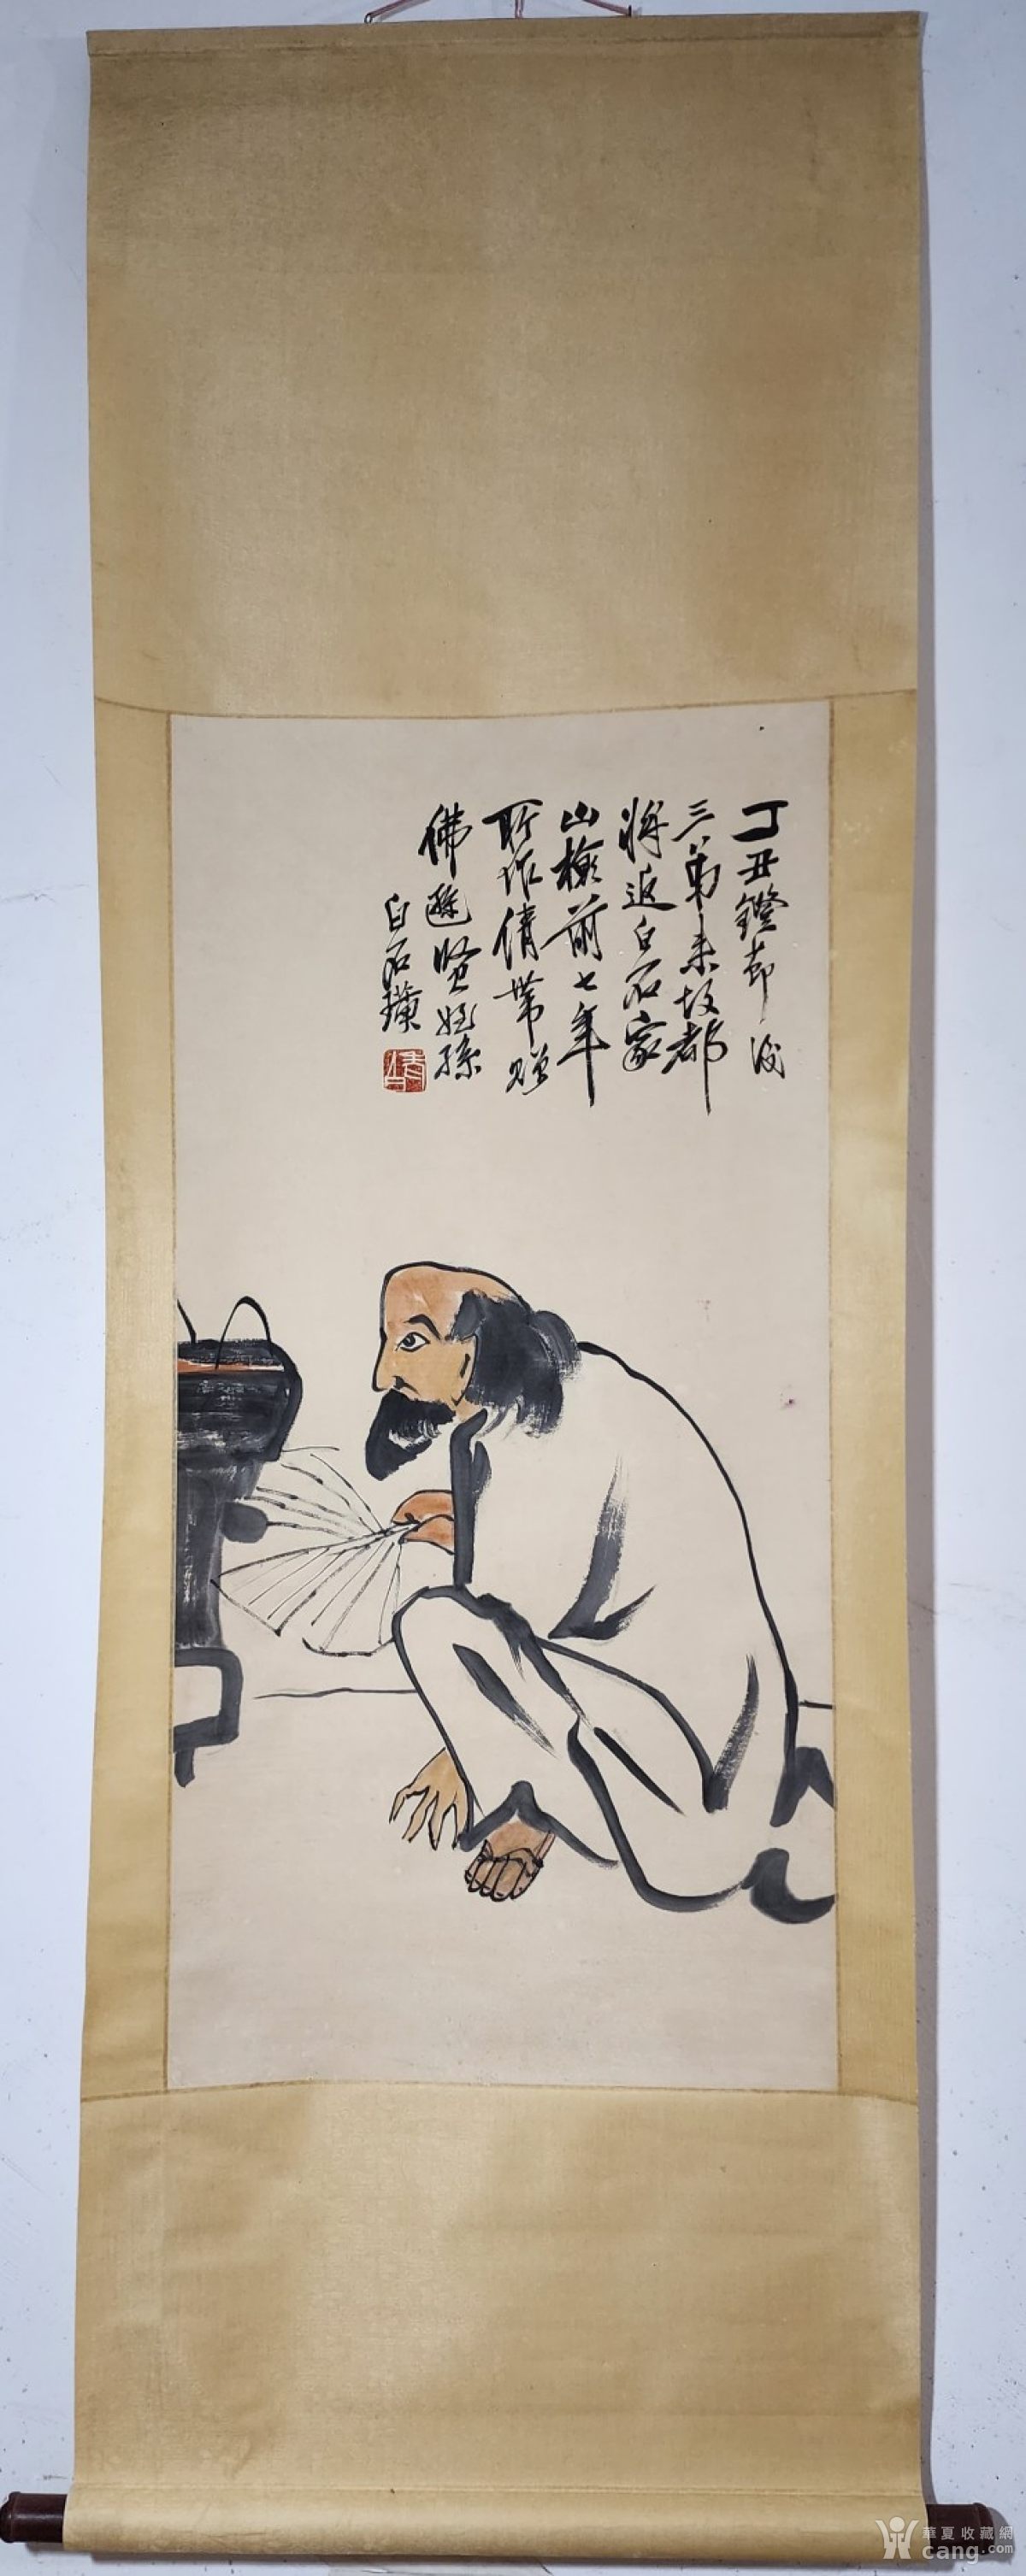 丁丑鐙节後
三弟来故都
将返白石家
山检前七年
所作倩带赠
佛逊贤姪孫
白石璜
華夏收藏網
cang.com